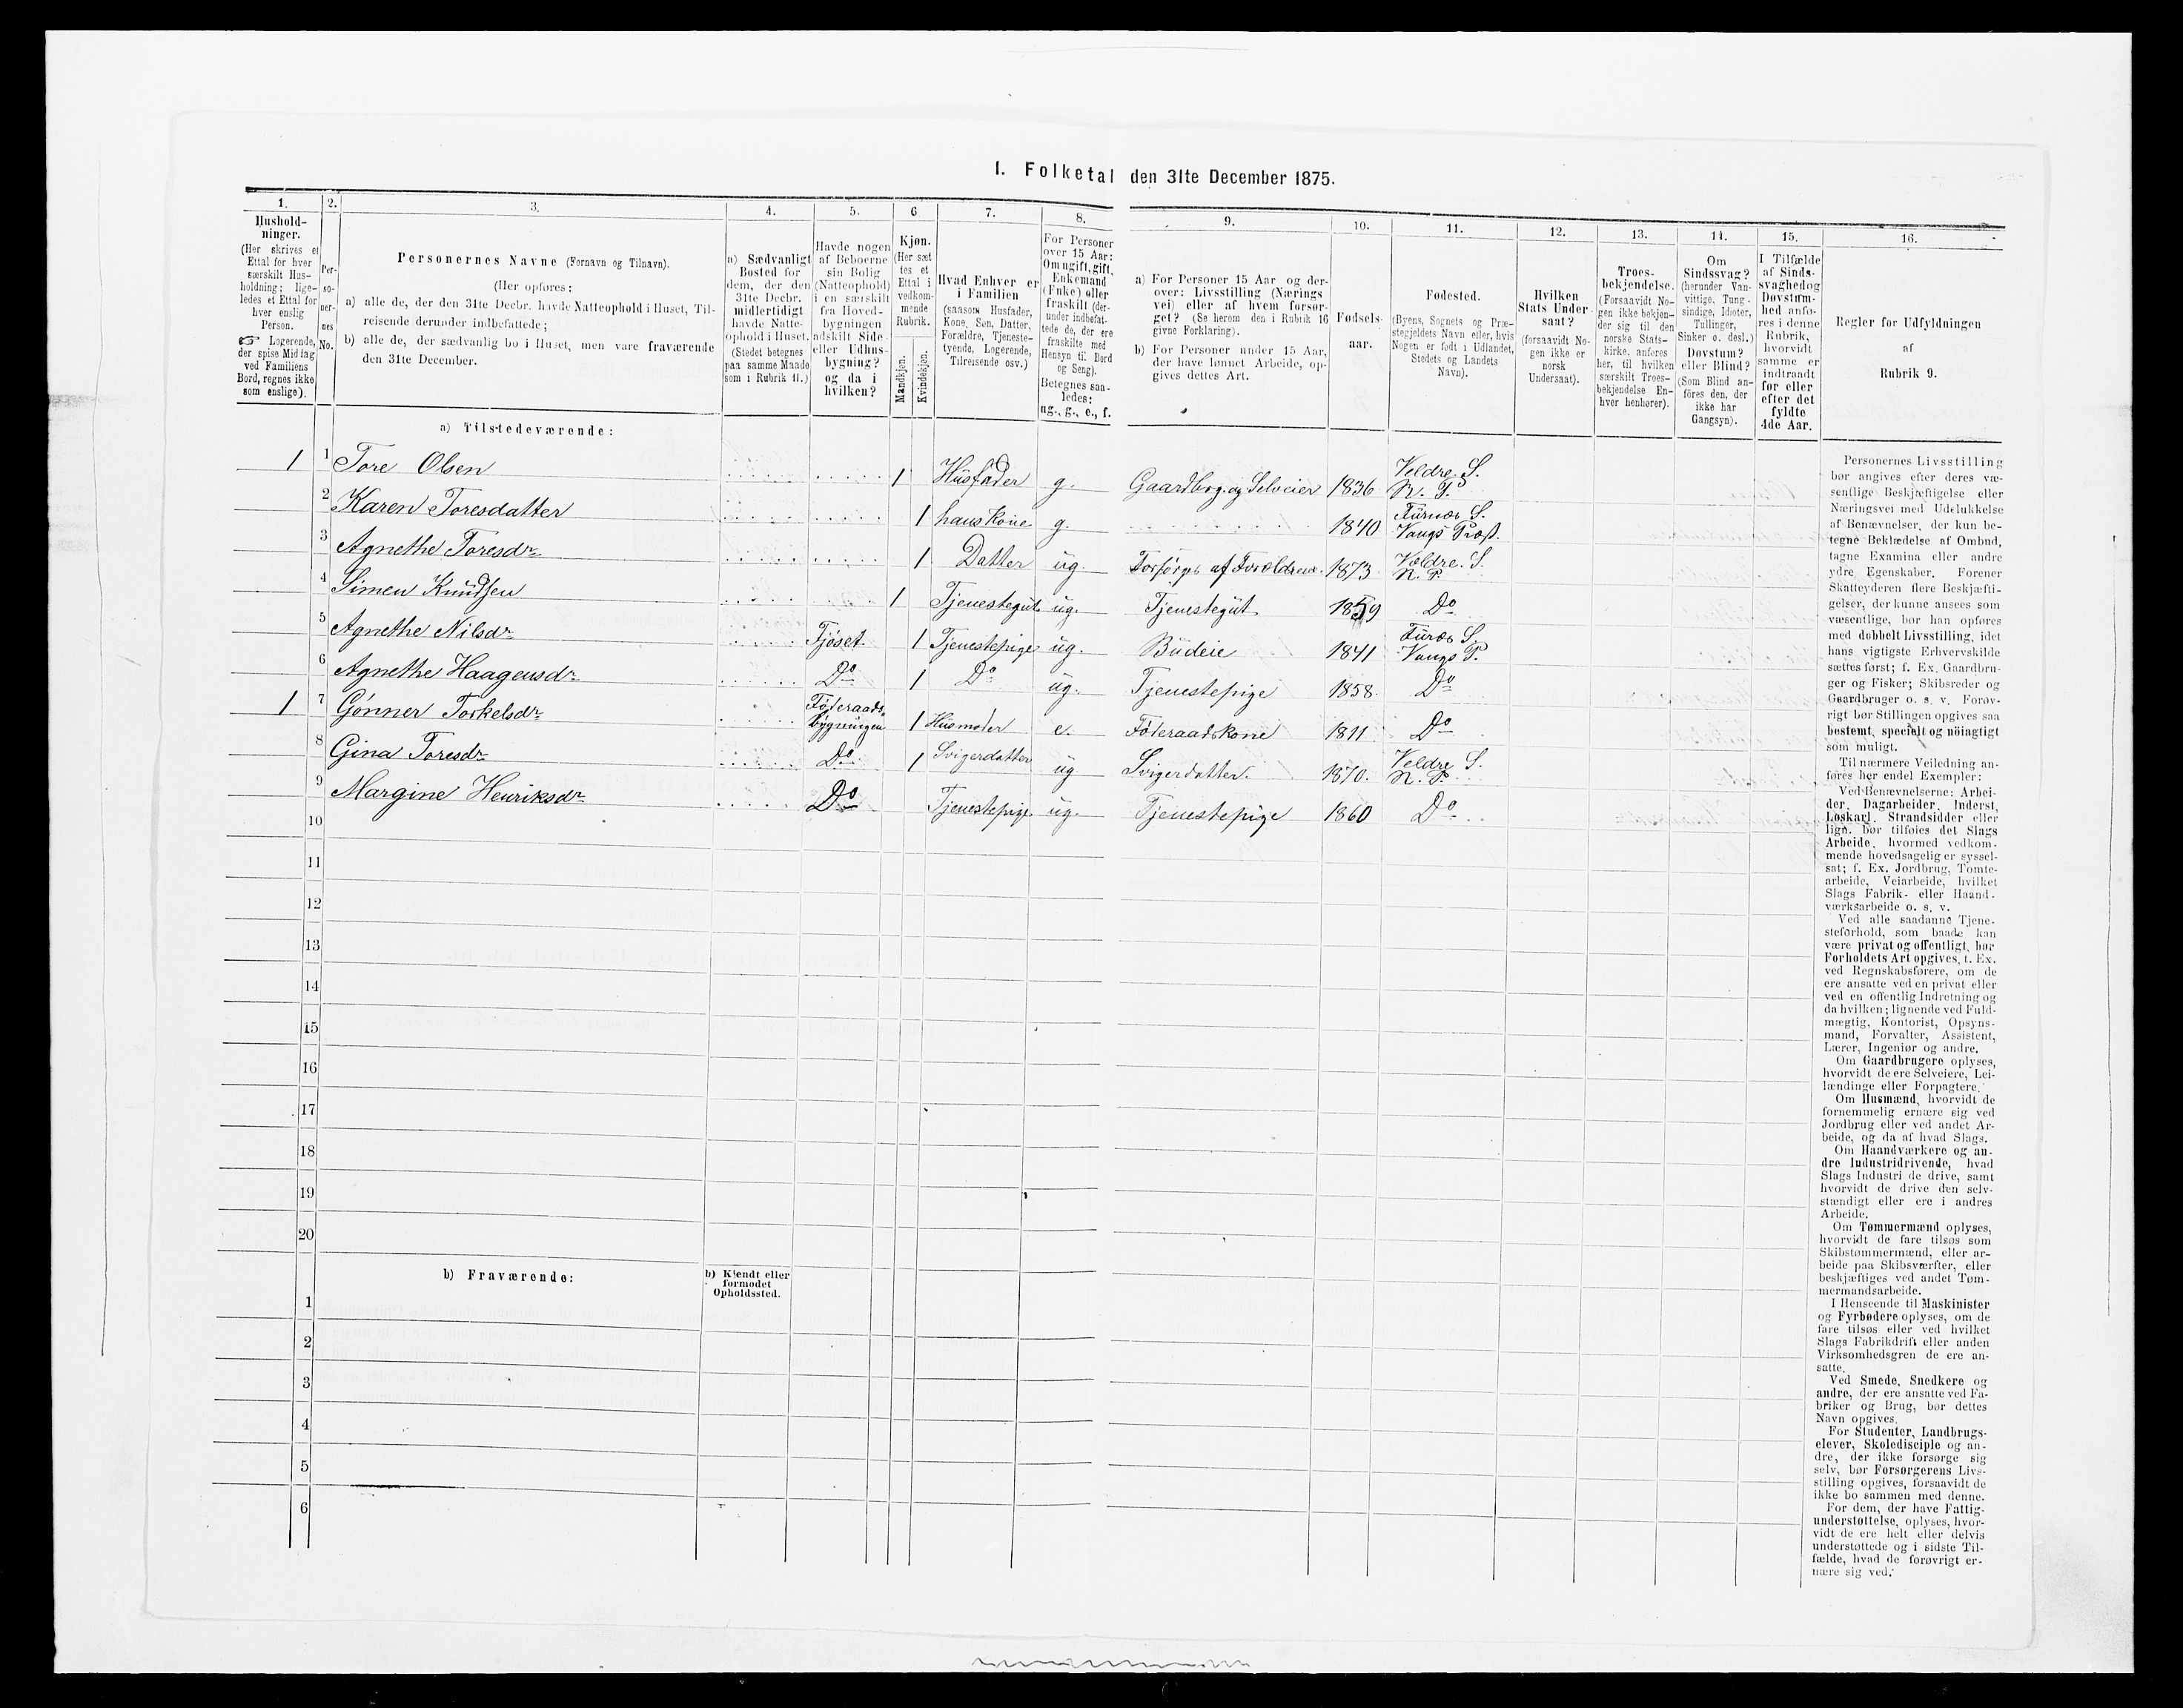 I. Folketal den 31te December 1875.
1. 2. 3. 4. 5. 6 7. 8. 9. 10. 11. 12. 13. 14. 15. 16.
Hushold-
ninger.
(Her skrives et
Ettal for hver
særskilt Hus-
holdning; lige-
ledes et Ettal for
hver enslig
Person.
☞ Logerende,
der spise Middag
ved Familiens
Bord, regnes ikke
som enslige).
Per-
so-
ner-
nes
No.
Personernes Navne (Fornavn og Tilnavn).
(Her opføres:
a) alle de, der den 31te Decbr. havde Natteophold i Huset, Til-
reisende derunder indbefattede;
b) alle de, der sædvanlig bo i Huset, men vare fraværende
den 31te December.
a) Sædvanligt
Bosted for
dem, der den
31te Decbr.
midlertidigt
havde Natte-
ophold i Huset.
(Stedet betegnes
paa samme Maade
som i Rubrik 11.)
Havde nogen
af Beboerne
sin Bolig
(Natteophold)
i en særskilt
fra Hoved-
bygningen
adskilt Side-
eller Udhus-
bygning?
og da i
hvilken?
Kjøn.
(Her sæt
tes et
Ettal i
vedkom-
mende
Rubrik.
Mandkjøn.
Kvindekjøn.
Hvad Enhver er
i Familien
(saasom Husfader,
Kone, Søn, Datter,
Forældre, Tjeneste-
tyende, Logerende,
Tilreisende osv.)
For Personer
over 15 Aar:
Om ugift, gift,
Enkemand
(Enke) eller
fraskilt (der-
under indbefat-
tede de, der ere
fraskilte med
Hensyn til Bord
og Seng).
Betegnes saa-
ledes:
ug., g., e., f.
a) For Personer 15 Aar og der-
over: Livsstilling (Nærings
vei) eller af hvem forsør-
get? (Se herom den i Rubrik 16
givne Forklaring).
b) For Personer under 15 Aar,
der have lønnet Arbeide, op-
gives dettes Art.
Fødsels-
aar.
Fødested.
(Byens, Sognets og Præ-
stegjeldets Navn eller, hvis
Nogen er født i Udlandet,
Stedets og Landets
Navn).
Hvilken
Stats Under-
saat?
(forsaavidt No-
gen ikke er
norsk
Undersaat).
Troes-
bekjendelse.
(Forsaavidt No-
gen ikke bekjen-
der sig til den
norske Stats-
kirke, anføres
her, til hvilken
særskilt Troes-
bekjendelse En-
hver henhører).
Om
Sindssvag?
(herunder Van-
vittige, Tung-
sindige, Idioter,
Tullinger,
Sinker o. desl.)
Døvstum?
eller Blind?
(Som Blind an-
føres den, der
ikke har
Gangsyn).
I Tilfælde
af Sinds-
svaghed og
Døvstum-
hed anfø-
res i denne
Rubrik,
hvorvidt
samme er
indtraadt
før eller
efter det
fyldte
4de Aar.
Regler for Udfyldningen
af
Rubrik 9.
a) Tilstedeværende:
1 1 Tore Olsen 1 Husfader g. Gaardbrg. og Selveier 1836 Veldre S. R. P.
2 Karen Toresdatter 1 hans Kone g. 1840 Furnæs S. Vangs Præst.
3 Agnethe Toresdr 1 Datter ug. Forsørges af Forældrene. 1873 Veldre. S. R. P.
4 Simen Knudsen 1 Tjenestegut ug. Tjenestegut 1859 Do
5 Agnethe Nilsdr Fjøset 1 Tjenestepige ug. Budeie 1841 Furæs S. Vangs P.
6 Agnethe Haagensdr Do 1 Do ug. Tjenestepige 1858 Do
1 7 Gonner Torkelsdr Føderaads bygningen 1 Husmoder e. Føderaadskone 1811 Do
8 Gina Toresdr Do 1 Svigerdatter ug Svigerdatter. 1870. Veldre S. R. P.
9 Margine Henriksdr Do Tjenestepige ug. Tjenestepige 1860 Do
10
11
12
13
14
15
16
17
18
19
20
b) Fraværende:
b) Kjendt eller
formodet
Opholdssted.
1
2
3
4
5
6
Personernes Livsstilling
bør angives efter deres væ-
sentlige Beskjæftigelse eller
Næringsvei med Udelukkelse
af Benævnelser, der kun be-
tegne Beklædelse af Ombud,
tagne Examina eller andre
ydre Egenskaber. Forener
Skatteyderen flere Beskjæfti-
gelser, der kunne ansees som
væsentlige, bør han opføres
med dobbelt Livsstilling, idet
hans vigtigste Erhvervskilde
sættes først; f. Ex. Gaardbru-
ger og Fisker; Skibsreder og
Gaardbruger o. s. v. Forøv-
rigt bør Stillingen opgives saa
bestemt, specielt og nöiagtigt
som muligt.
Til nærmere Veiledning an-
føres her endel Exempler:
Ved Benævnelserne: Arbei-
der, Dagarbeider, Inderst,
Løskarl, Strandsidder eller
lign. bør tilføies det Slags
Arbeide, hvormed vedkom-
mende hovedsagelig er syssel-
sat; f. Ex. Jordbrug, Tomte-
arbeide, Veiarbeide, hvilket
Slags Fabrik- eller Haand-
værksarbeide o. s. v.
Ved alle saadanne Tjene-
steforhold, som baade kan
være privat og offentligt, bør
Forholdets Art opgives, f. Ex.
ved Regnskabsførere, om de
ere ansatte ved en privat eller
ved en offentlig Indretning og
da hvilken; lignende ved Fuld-
mægtig, Kontorist, Opsyns-
mand, Forvalter, Assistent,
Lærer, Ingeniør og andre.
Om Gaardbrugere oplyses,
hvorvidt de ere Selveiere, Lei-
lændinge eller Forpagtere.
Om Husmænd, hvorvidt de
fornemmelig ernære sig ved
Jordbrug eller ved andet Ar-
beide, og da af hvad Slags.
Om Haandværkere og an-
dre Industridrivende, hvad
Slags Industri de drive, samt
hvorvidt de drive den selv-
stændigt eller ere i andres
Arbeide.
Om Tømmermænd oplyses,
hvorvidt de fare tilsøs som
Skibstømmermænd, eller ar-
beide paa Skibsværfter, eller
beskjæftiges ved andet Tøm-
mermandsarbeide.
I Henseende til Maskinister
og Fyrbødere oplyses, om de
fare tilsøs eller ved hvilket
Slags Fabrikdrift eller anden
Virksomhedsgren de ere an-
satte.
Ved Smede, Snedkere og
andre, der ere ansatte ved Fa-
briker og Brug, bør dettes
Navn opgives.
For Studenter, Landbrugs-
elever, Skoledisciple og an-
dre, der ikke forsørge sig
selv, bør Forsørgerens Livs-
stilling opgives, forsaavidt de
ikke bo sammen med denne.
For dem, der have Fattig-
understøttelse, oplyses, hvor-
vidt de ere helt eller delvis
understøttede og i sidste Til-
fælde, hvad de forøvrigt er-
nære sig ved.